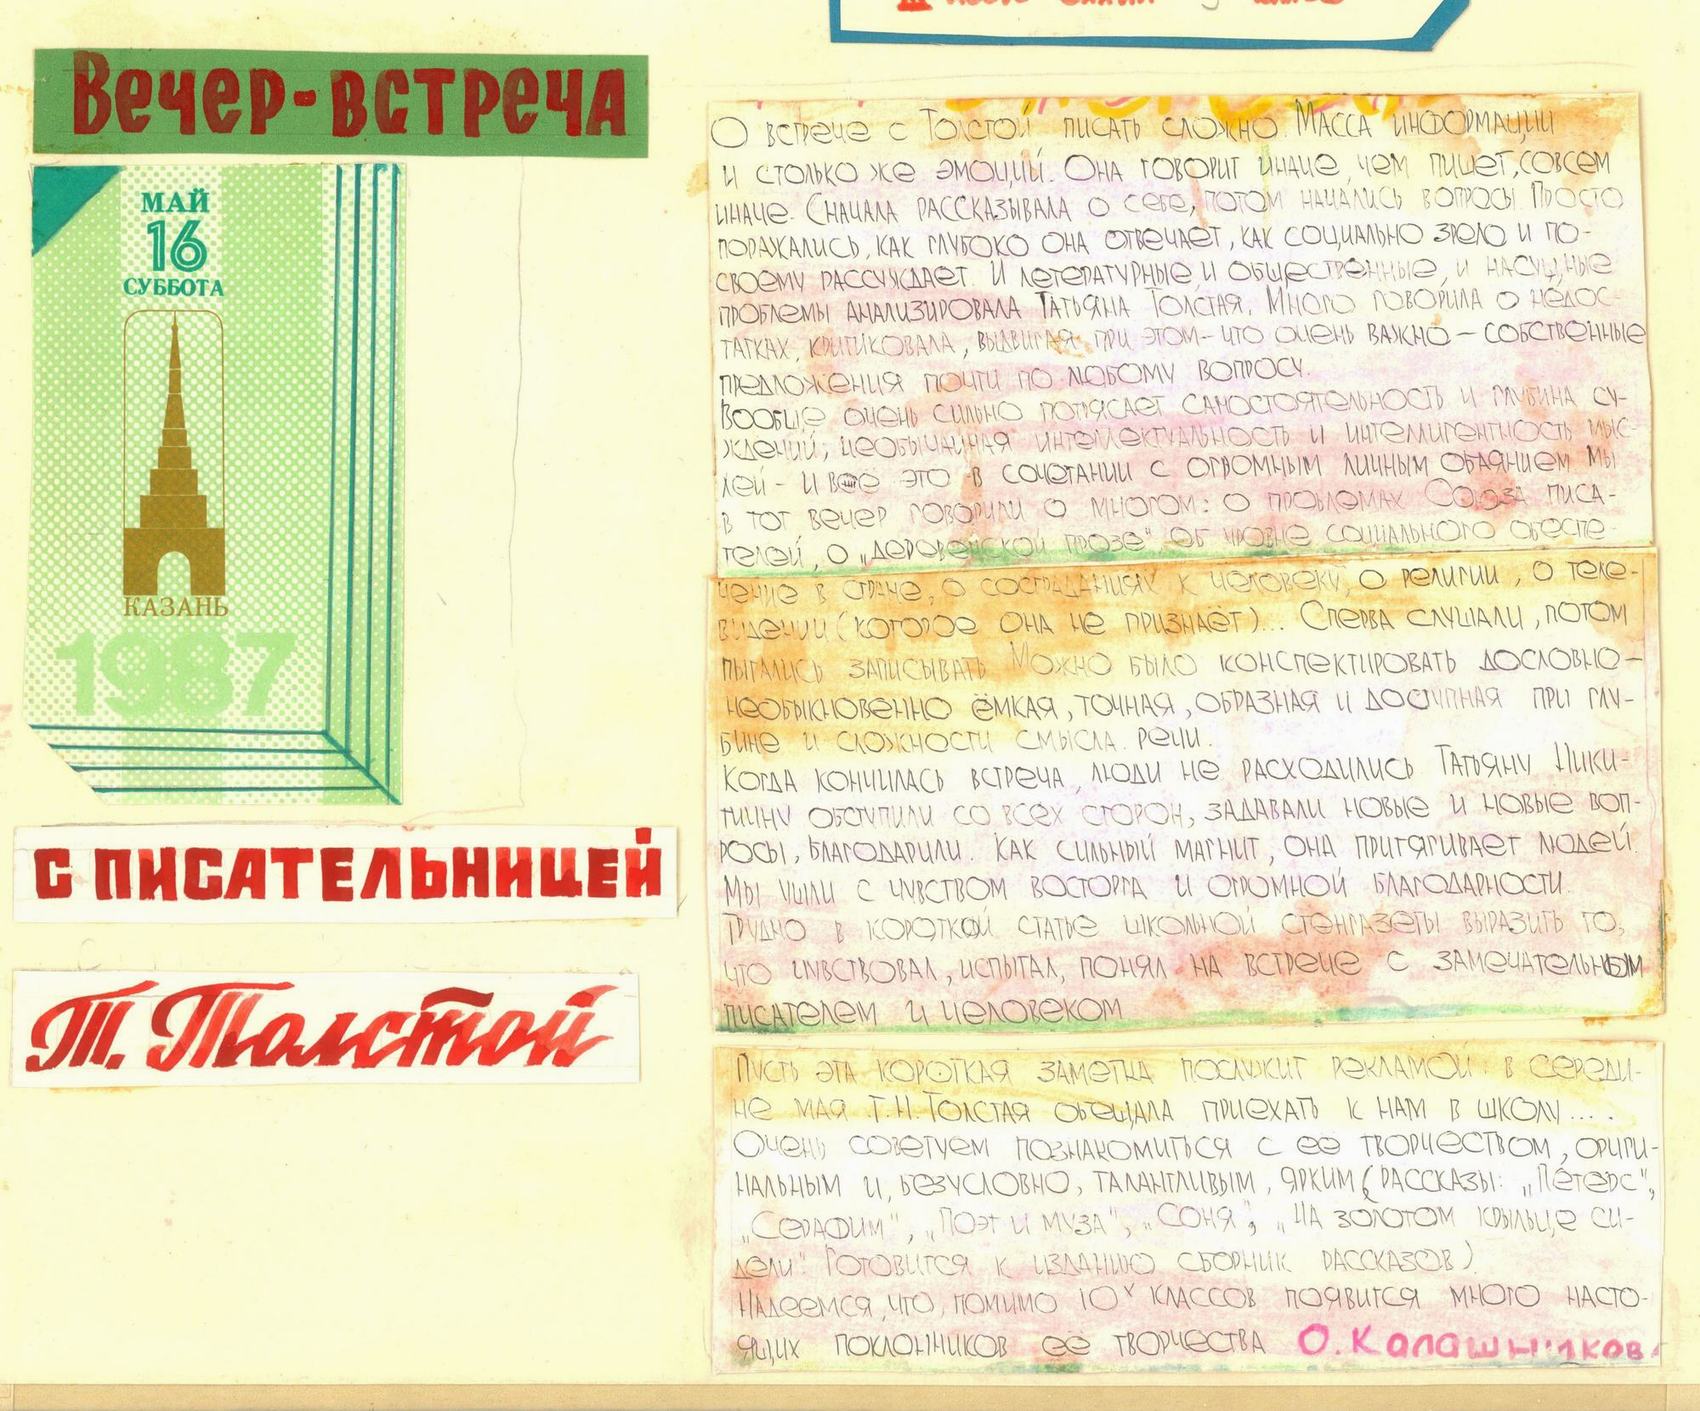 Вечер-встреча
МАЙ
16
СУББОТА
КАЗАНЬ
1987
С ПИСАТЕЛЬНИЦЕЙ
Т. Толстой
О встрече с Толстой писать сложно. Масса информации
и столько же эмоций. Она говорит иначе, чем пишет, совсем
иначе. Сначала рассказывала о себе, потом начались вопросы. Просто
поражались, как глубоко она отвечает, как социально зрело и по-
своему рассуждает. И летературные, и общественные, и насущные
проблемы анализировала Татьяна Толстая. Много говорила о недос-
татках, критиковала, выдвигая при этом - что очень важно - собственные
предложения почти по любому вопросу.
Вообще очень сильно потрясает самостоятельность и глубина су-
ждений, необычайная интеллектуальность и интеллигентность мыс-
лей - и все это в сочетании с огромным личным обаянием. Мы
в тот вечер говорили о многом: о проблемах Союза писа-
телей, о „деровенской прозе" об уровне социального обеспе-
чение в стране, о состраданиях к человеку, о религии, о теле-
видении (которое она не признаёт)... Сперва слушали, потом
пытались записывать. Можно было конспектировать дословно -
необыкновенно ёмкая, точная, образная и доступная при глу-
бине и сложности смысла речи.
Когда кончилась встреча, люди не расходились. Татьяну Ники-
тичну обступили со всех сторон, задавали новые и новые воп-
росы, благодарили. Как сильный магнит, она притягивает людей.
Мы ушли с чувством восторга и огромной благодарности.
Трудно в короткой статье школьной стенгазеты выразить то,
что чувствовал, испытал, понял на встрече с замечательным
писателем и человеком
Пусть эта короткая заметка послужит рекламой: в середи-
не мая Т.Н. Толстая обещала приехать к нам в школу....
Очень советуем познакомиться с ее творчеством, ориги-
нальным и, безусловно, талантливым, ярким (рассказы: „Петерс",
„Серафим", „Поэт и муза", „Соня", „На золотом крыльце си-
дели". Готовится к изданию сборник рассказов).
Надеемся, что, помимо 10х классов появится много насто-
ящих поклонников её творчества О. Калашников